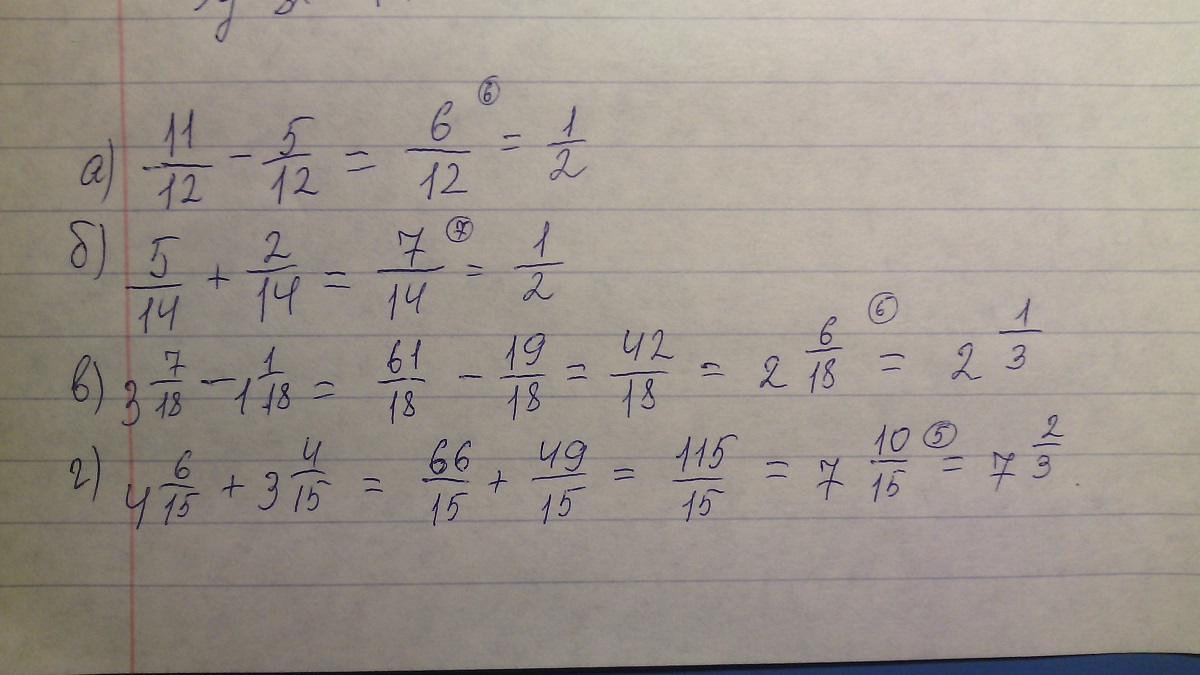 а) 11/12 - 5/12 = 6/12 ⑥ = 1/2
б) 5/14 + 2/14 = 7/14 ⑦ = 1/2
в) 3 7/18 - 1 1/18 = 61/18 - 19/18 = 42/18 = 2 6/18 ⑥ = 2 1/3
г) 4 6/15 + 3 4/15 = 66/15 + 49/15 = 115/15 = 7 10/15 ⑤ = 7 2/3.